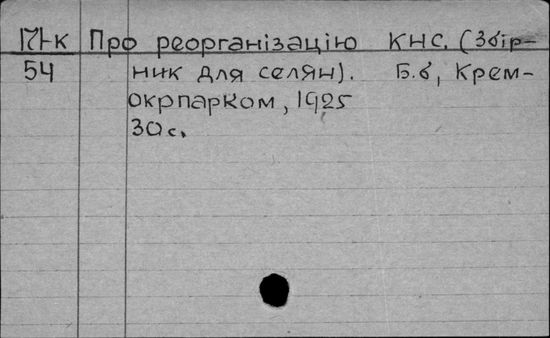 П1-к Про реорганізацію КНС. (Збір-
54 ник для селян). Б.б, Крем-
окрпарком, 1925
30 с.